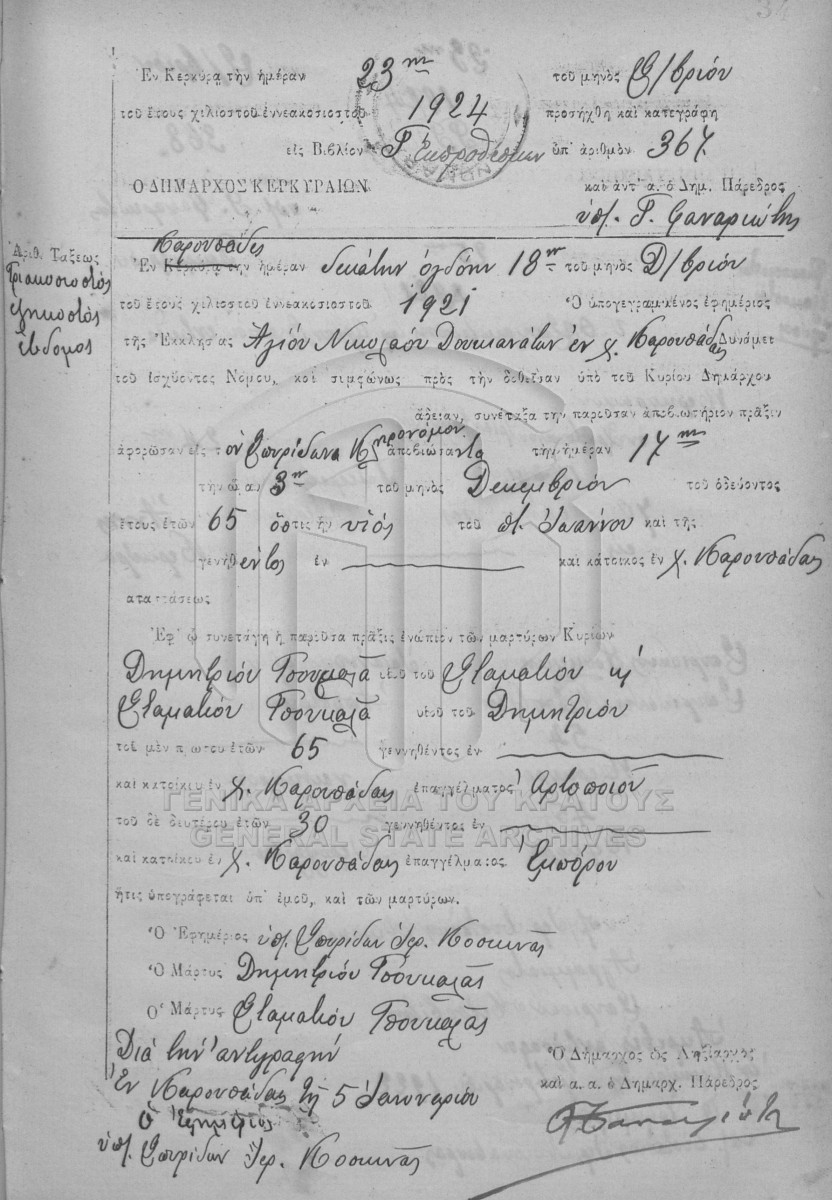 34
Ἐν Κερκύρᾳ τὴν ἡμέραν 23ην τοῦ μηνὸς 9/βρίου
τοῦ ἔτους χιλιοστοῦ ἐννεακοσιοστοῦ 1924 προσήχθη καὶ κατεγράφη
εἰς Βιβλίον Γ Ἐκπροθέσμων ὑπ' ἀριθμὸν 367
Ο ΔΗΜΑΡΧΟΣ ΚΕΡΚΥΡΑΙΩΝ καὶ ἀντ' α. ὁ Δημ. Πάρεδρος
ὑπ. Γ. Φαναριώτης
Ἀριθ. Τάξεως
Τριακοσιοστὸς
ἑξηκοστὸς
ἕβδομος
Καρουσάδες
Ἐν Κερκύρᾳ τὴν ἡμέραν δεκάτην ὀγδόην 18ην τοῦ μηνὸς Δ/βρίου
τοῦ ἔτους χιλιοστοῦ ἐννεακοσιοστοῦ 1921 Ὁ ὑπογεγραμμένος ἐφημέριος
τῆς Ἐκκλησίας Ἁγίου Νικολάου Δουκανάτων ἐν χ. Καρουσάδας Δυνάμει
τοῦ ἰσχύοντος Νόμου, καὶ συμφώνως πρὸς τὴν δοθεῖσαν ὑπὸ τοῦ Κυρίου Δημάρχου
ἄδειαν, συνέταξα τὴν παροῦσαν ἀποβιωτήριον πρᾶξιν
ἀφορῶσαν εἰς τὸν Σπυρίδωνα Κληρονόμον ἀποβιώσαντα τὴν ἡμέραν 17ην
τὴν ὥραν 3ην τοῦ μηνὸς Δεκεμβρίου τοῦ ὁδεύοντος
ἔτους ἐτῶν 65 ὅστις ἦν υἱός τοῦ π. Ἰωάννου καὶ τῆς
γενηθέντος ἐν καὶ κάτοικος ἐν χ. Καρουσάδας
καταστάσεως
Ἐφ' ᾧ συνετάγη ἡ παροῦσα πρᾶξις ἐνώπιον τῶν μαρτύρων Κυρίων
Δημητρίου Τσουκαλᾶ υἱοῦ τοῦ Σταματίου κ
Σταματίου Τσουκαλᾶ υἱοῦ τοῦ Δημητρίου
τοῦ μὲν πρώτου ἐτῶν 65 γεννηθέντος ἐν
καὶ κατοίκου ἐν χ. Καρουσάδας ἐπαγγέλματος Ἀρτοποιοῦ
ΓΕΝΙΚΑ ΑΡΧΕΙΑ ΤΟΥ ΚΡΑΤΟΥΣ
τοῦ δὲ δευτέρου ἐτῶν 30 γεννηθέντος ἐν
GENERAL STATE ARCHIVES
καὶ κατοίκου ἐν χ. Καρουσάδας ἐπαγγέλματος Ἐμπόρου
ἥτις ὑπογράφεται ὑπ' ἐμοῦ, καὶ τῶν μαρτύρων.
Ὁ Ἐφημέριος ὑπ. Σπυρίδων Ἱερ. Κοσκινᾶς
Ὁ Μάρτυς Δημητρίου Τσουκαλᾶς
Ὁ Μάρτυς Σταματίου Τσουκαλᾶς
Διὰ τὴν ἀντιγραφὴν
Ἐν Καρουσάδας τῇ 5 Ἰανουαρίου
Ὁ Ἐφημέριος
ὑπ. Σπυρίδων Ἱερ. Κοσκινᾶς
Ὁ Δήμαρχος ὡς Ληξίαρχος
καὶ α. α. ὁ Δημαρχ. Πάρεδρος